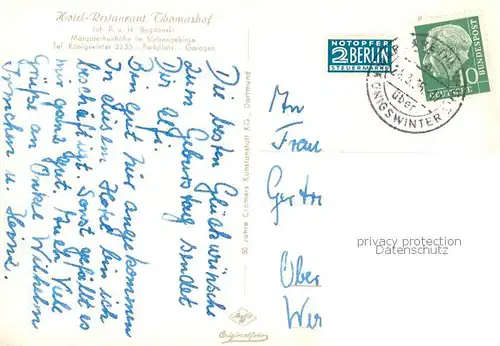 Hotel-Restaurant Thomashof
Inh. P. u. H. Boganski
Margarethenhöhe im Siebengebirge
Tel. Königswinter 2230 - Parkplatz - Garagen
Die besten Glückwünsche
zum Geburtstag sendet
Dir Elfi.
Bin gut hier angekommen
In diesem Hotel bin ich
beschäftigt. Sonst gefällt es
mir ganz gut. Euch Viele
Grüße an Onkel Wilhelm
Irmchen u. Heinz.
50 Jahre Cramers Kunstanstalt KG., Dortmund
Agfa
Originalfoto
NOTOPFER
2 BERLIN
STEUERMARKE
DEUTSCHE
BUNDESPOST
10
über
KÖNIGSWINTER
An
Frau
Gertr
Ober
Wer
privacy protection
Datenschutz